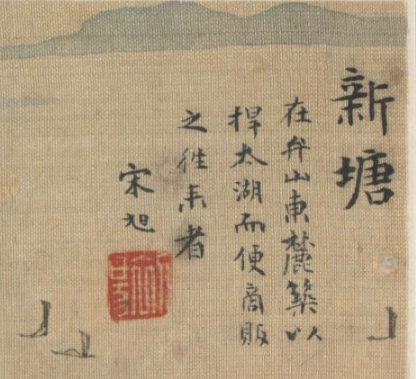 新塘
在弁山東麓築以
捍太湖而便商販
之徃来者
宋旭